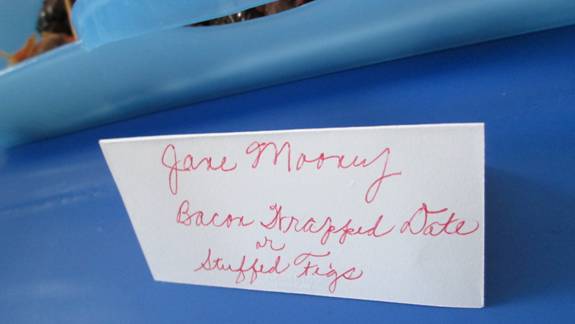 Jane Mooney
Bacon Wrapped Date
or
Stuffed Figs